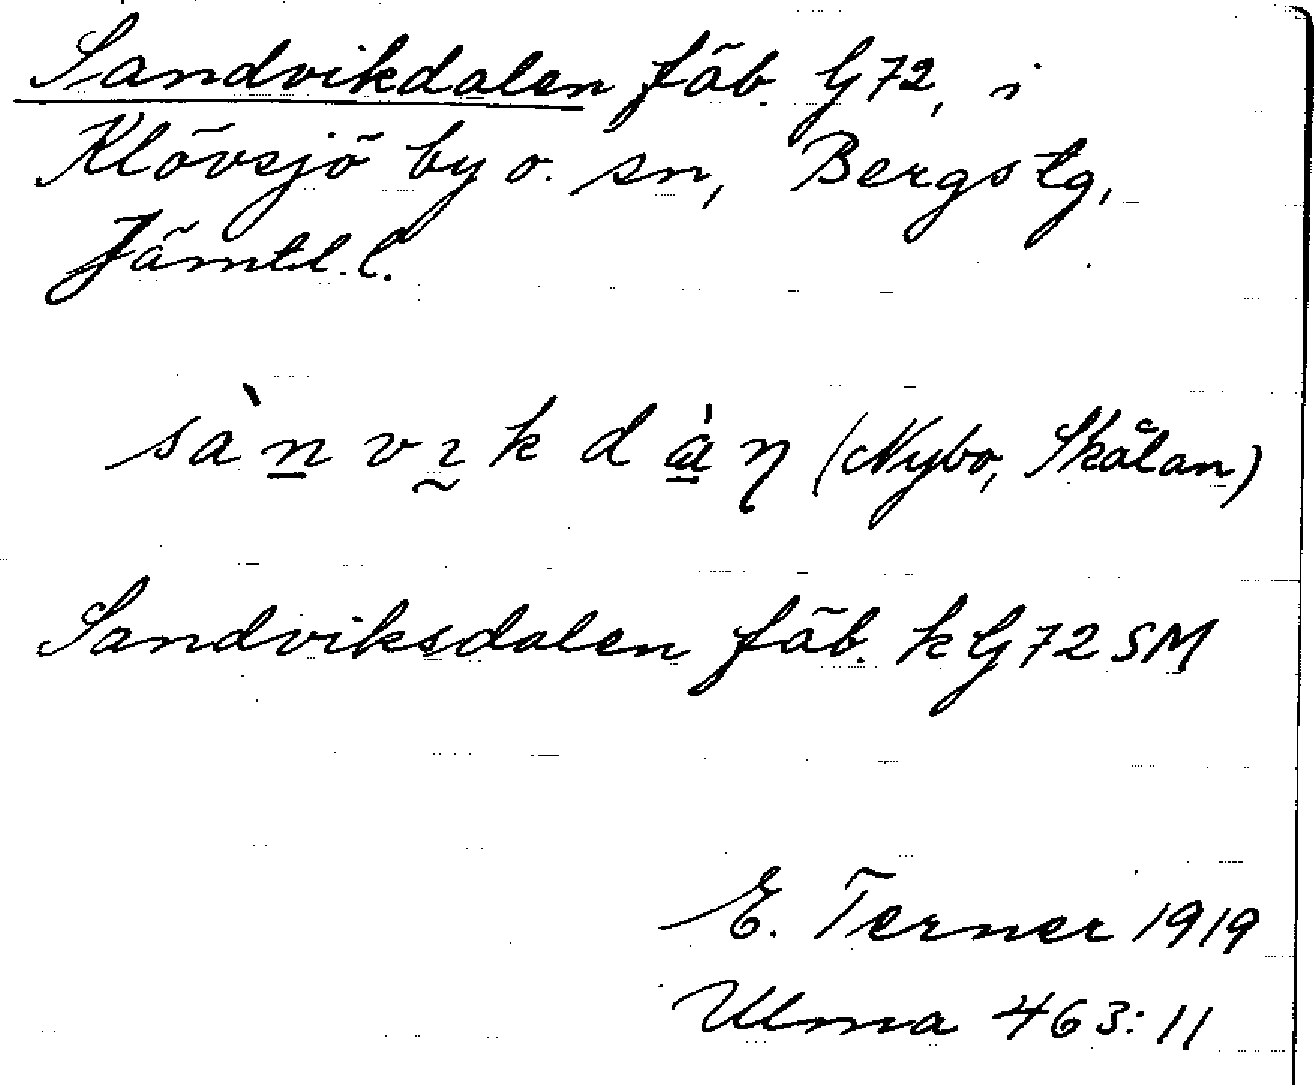 Sandvikdalen fäb. G72, i
Klövsjö by o. sn, Bergs tg,
Jämtl. l.
sàn̲vı̰kda̲̍η (Nybo, Skålan)
Sandviksdalen fäb. kG72SM
E. Terner 1919
Ulma 463:11